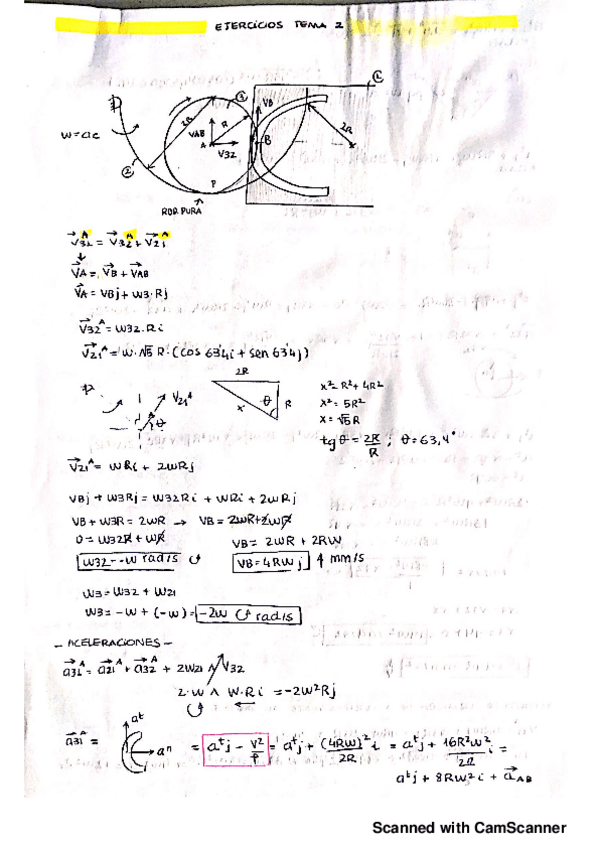 EJERCICIOS TEMA 2
1
3
VB
2R
R
2R
VAB
B
w=cte
A
V32
2
P
ROD. PURA
V31^A = V32^A + V21^A
↓
VA = VB + VAB
VA = VBj + W3·Rj
V32^A = W32·Ri
V21^A = W·√5 R·(cos 63'4i + sen 63'4j)
2R
x² = R² + 4R²
V21^A
x
θ
R
x² = 5R²
θ
x = √5R
tg θ = 2R/R ; θ = 63,4°
V21^A = WRi + 2WRj
VBj + W3Rj = W32Ri + WRi + 2WRj
VB + W3R = 2WR → VB = 2WR + 2WR
0 = W32R + WR
VB = 2WR + 2RW
W32 = -W rad/s
VB = 4RW j mm/s
W3 = W32 + W21
W3 = -W + (-W) = -2W rad/s
- ACELERACIONES -
a31^A = a21^A + a32^A + 2W21 ∧ V32
2·W ∧ W·Ri = -2W²Rj
a31 =
a^t
a^n
= a^t j - V²/ρ = a^t j + (4RW)²/2R i = a^t j + 16R²W²/2R i =
a^t j + 8RW²i + aAB
Scanned with CamScanner